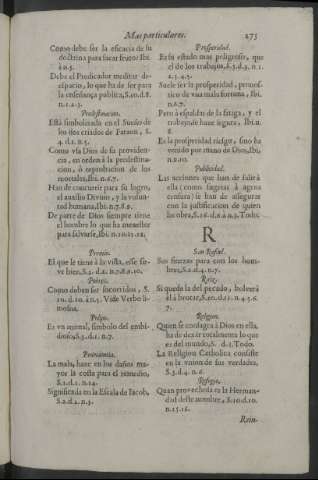 Mas particulares. 273
Como debe ser la eficacia de su
doctrina para sacar fruto: Ibi.
à n.5.
Debe el Predicador meditar des-
pacio, lo que ha de ser para
la enseñança publica, S.10.d.8.
n.1.2.3.
Predestinacion.
Està simbolizada en el Sueño de
los dos criados de Faraon, S.
4.d.2. n.5.
Como vsa Dios de su providen-
cia, en orden à la predestina-
cion, ò reprobacion de los
mortales, Ibi. n.6.7.
Han de concurrir para su logro,
el auxilio Divino, y la volun-
tad humana, Ibi. n.7.8.9.
De parte de Dios siempre tiene
el hombre lo que ha menester
para salvarse, Ibi. n.10.11.12.
Premio.
El que le tiene à la vista, esse sir-
ve bien, S.3. d.2. n.7.8.9.10.
Pobres.
Como deben ser socorridos, S.
10. d.10. à n.5. Vide Verbo li-
mosna.
Pulpo.
Es vn animal, simbolo del embi-
dioso, S.5.d.1. n.7.
Penitencia.
La mala, hace en los daños ma-
yor la costa para el remedio,
S.2.d.1. n.14.
Significada en la Escala de Iacob,
S.2.d.2. n.5.
Prosperidad.
Es su estado mas peligroso, que
el de los trabajos, S.3.d.3. n.1.
2.3.4.5.
Suele ser la prosperidad, pronos-
tico de vna mala fortuna, Ibi.
n.6.7.
Pero à espaldas de la fatiga, y el
trabajo, se hace segura, Ibi. n.
8.
Es la prosperidad riesgo, sino ha
venido por mano de Dios, Ibi.
n.9.10.
Publicidad.
Las acciones que han de salir à
ella (como sugetas à agena
censura) se han de assegurar
con la satisfaccion de quien
las obra, S.16. d.6. à n.3. Todo.
R
San Rafael.
Son fiestas para con los hom-
bres, S.2.d.4. n.7.
Raiz.
Si queda la del pecado, bolverà
à la brotar, S.10.d.11. n.4.5.6.
7.
Religion.
Quien se consagra à Dios en ella,
ha de dexar totalmente lo que
es del mundo, S. d.1. Todo.
La Religion Catholica consiste
en la vnion de sus verdades,
S.3.d.4. n.6.
Refugio.
Quan provechosa es la Herman-
dad deste nombre, S.10.d.10.
n.15.16.
Rein-